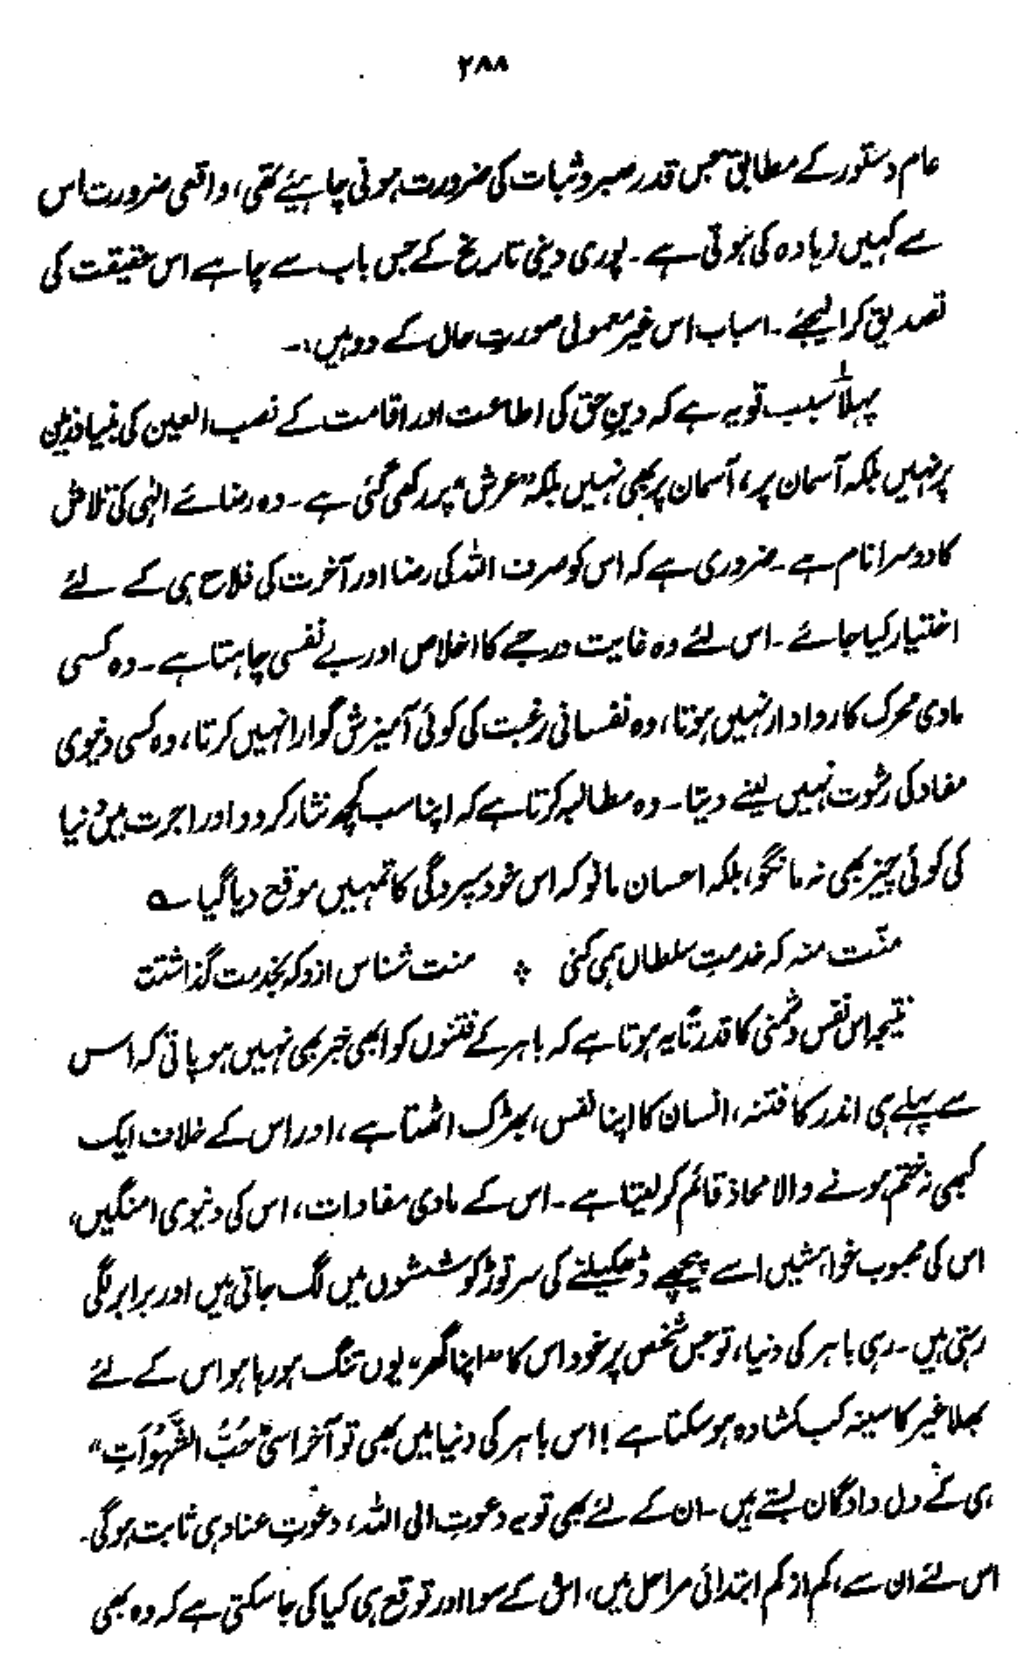 ۲۸۸
عام دستور کے مطابق جس قدر صبر و ثبات کی ضرورت ہونی چاہیئے تھی، واقعی ضرورت اس
سے کہیں زیادہ کی ہوتی ہے۔ پوری دینی تاریخ کے جس باب سے چاہے اس حقیقت کی
تصدیق کرا لیجئے۔ اسباب اس غیر معمولی صورتِ حال کے دو ہیں:۔
پہلا سبب تو یہ ہے کہ دینِ حق کی اطاعت اور اقامت کے نصب العین کی بنیاد زمین
پر نہیں بلکہ آسمان پر، آسمان پر بھی نہیں بلکہ "عرش" پر رکھی گئی ہے۔ وہ رضائے الٰہی کی تلاش
کا دوسرا نام ہے۔ ضروری ہے کہ اس کو صرف اللہ کی رضا اور آخرت کی فلاح ہی کے لئے
اختیار کیا جائے۔ اس لئے وہ غایت درجے کا اخلاص اور بے نفسی چاہتا ہے۔ وہ کسی
مادی محرک کا روادار نہیں ہوتا، وہ نفسانی رغبت کی کوئی آمیزش گوارا نہیں کرتا، وہ کسی دنیوی
مفاد کی رشوت نہیں لینے دیتا۔ وہ مطالبہ کرتا ہے کہ اپنا سب کچھ نثار کر دو اور اجرت میں دنیا
کی کوئی چیز بھی نہ مانگو، بلکہ احسان مانو کہ اس خود سپردگی کا تمہیں موقع دیا گیا ؎
منّت منہ کہ خدمتِ سلطاں ہمی کنی ؞ منت شناس ازو کہ بخدمت گذاشتت
نتیجہ اس نفس دشمنی کا قدرتًا یہ ہوتا ہے کہ باہر کے فتنوں کو ابھی خبر بھی نہیں ہو پاتی کہ اس
سے پہلے ہی اندر کا فتنہ، انسان کا اپنا نفس، بھڑک اٹھتا ہے، اور اس کے خلاف ایک
کبھی نہ ختم ہونے والا محاذ قائم کر لیتا ہے۔ اس کے مادی مفادات، اس کی دنیوی امنگیں،
اس کی محبوب خواہشیں اسے پیچھے ڈھکیلنے کی سرتوڑ کوششوں میں لگ جاتی ہیں اور برابر لگی
رہتی ہیں۔ رہی باہر کی دنیا، تو جس شخص پر خود اس کا "اپنا گھر" یوں تنگ ہو رہا ہو اس کے لئے
بھلا غیر کا سینہ کب کشادہ ہو سکتا ہے! اس باہر کی دنیا میں بھی تو آخر اسی "حُبُّ الشَّہَوَاتِ"
ہی کے دل دادگان بستے ہیں۔ ان کے لئے بھی تو یہ دعوت الی اللہ، دعوتِ عناد ہی ثابت ہوگی۔
اس لئے ان سے، کم از کم ابتدائی مراحل میں، اس کے سوا اور توقع ہی کیا کی جا سکتی ہے کہ وہ بھی